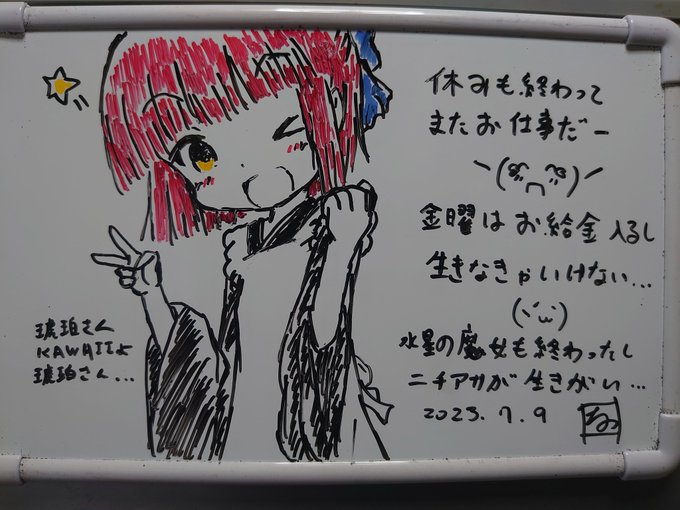 休みも終わって
またお仕事だー
金曜はお給金入るし
生きなきゃいけない...
(´・ω・`)
水星の魔女も終わったし
ニチアサが生きがい...
2023.7.9
琥珀さん
KAWAIIよ
琥珀さん...